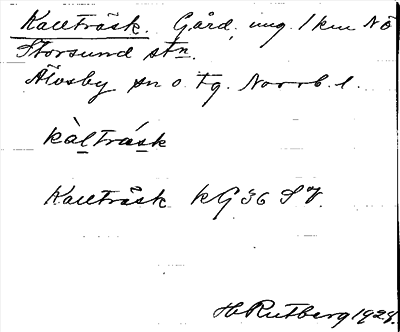 Kallträsk. Gård, ung. 1 km NÖ
Storsund stn.
Älvsby sn o. tg. Norrb. l.
kàlträsk
Kallträsk kG 36 SV.
H Rutberg 1928.